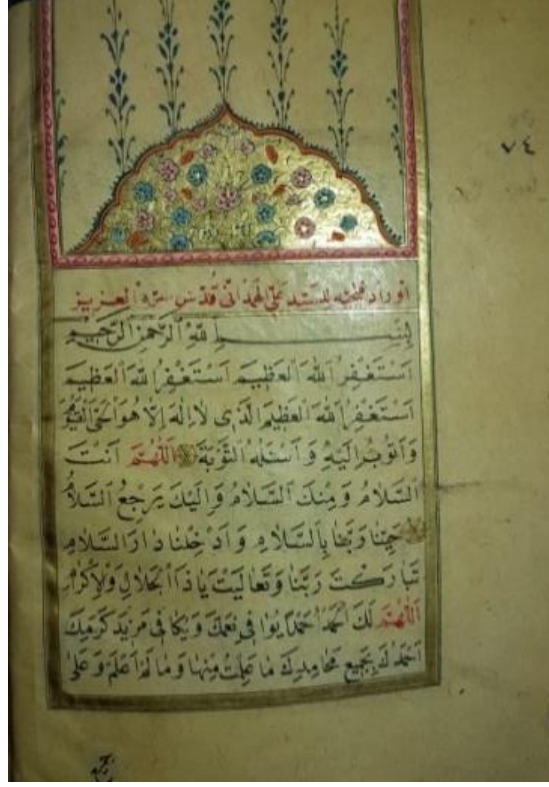 ٧٤
اوراد فتحيه للسيد على الهمدانى قدس سره العزيز
بِسْمِ اللّٰهِ الرَّحْمٰنِ الرَّحِيمِ
اَسْتَغْفِرُ اللّٰهَ الْعَظِيمَ اَسْتَغْفِرُ اللّٰهَ الْعَظِيمَ
اَسْتَغْفِرُ اللّٰهَ الْعَظِيمَ الَّذٖى لَا اِلٰهَ اِلَّا هُوَ الْحَىُّ الْقَيُّومُ
وَاَتُوبُ اِلَيْهِ وَاَسْئَلُهُ التَّوْبَةَ اَللّٰهُمَّ اَنْتَ
السَّلَامُ وَمِنْكَ السَّلَامُ وَاِلَيْكَ يَرْجِعُ السَّلَامُ
حَيِّنَا رَبَّنَا بِالسَّلَامِ وَاَدْخِلْنَا دَارَ السَّلَامِ
تَبَارَكْتَ رَبَّنَا وَتَعَالَيْتَ يَا ذَا الْجَلَالِ وَالْاِكْرَامِ
اَللّٰهُمَّ لَكَ الْحَمْدُ حَمْدًا يُوَافِى نِعَمَكَ وَيُكَافِى مَزِيدَ كَرَمِكَ
اَحْمَدُكَ بِجَمِيعِ مَحَامِدِكَ مَا عَلِمْتُ مِنْهَا وَمَا لَمْ اَعْلَمْ وَعَلٰى